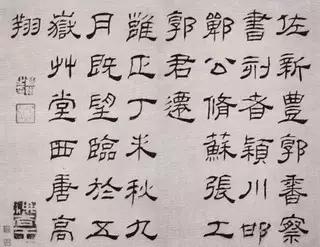 佐新豐郭香察
書刻者穎川邯
鄲公脩蘇張工
郭君遷
雝正丁未秋九
月既望臨於五
嶽艸堂西唐高
翔